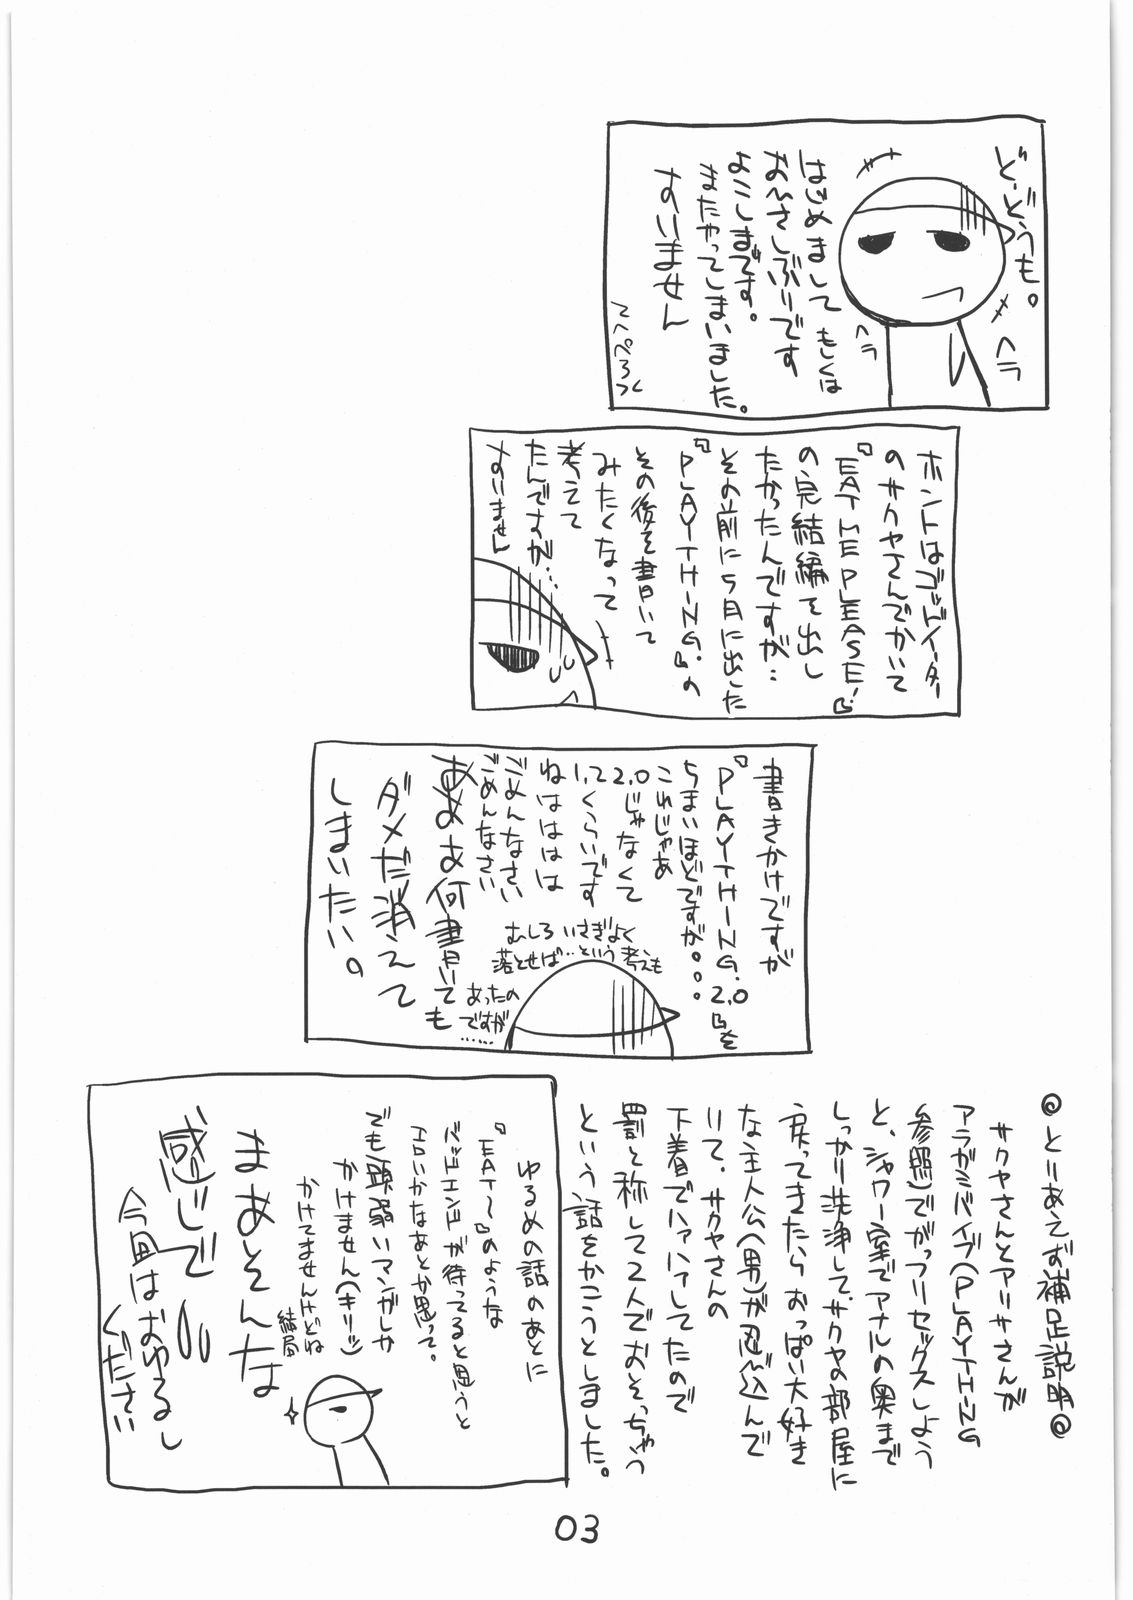 ど、どうも。
ヘラ
ヘラ
はじめまして もしくは
おひさしぶりです
よこしまです。
またやってしまいました。
すいません
ホントはゴッドイーター
のサクヤさんでかいて
『EAT ME PLEASE!』
の完結編を出し
たかったんですが…
その前に5月に出した
『PLAYTHING.』の
その後を書いて
みたくなって
考えて
たんですが…
すいません
書きかけですが
『PLAYTHING.2.0』を
うまいほどですが。。。
これじゃあ
2.0じゃなくて
1.2くらいです
ねはははは
ごめんなさい
ごめんなさい
ああぁ何書いても
ダメだ消えて
しまいたい。
むしろいさぎよく
落とせば…という考えも
あったの
ですが
……
◎とりあえず補足説明◎
サクヤさんとアリサさんが
アラガミバイブ(PLAYTHING
参照)でがっつりセックスしよう
と、シャワー室でアナルの奥まで
しっかり洗浄して、サクヤの部屋に
戻ってきたら おっぱい大好き
な主人公(男)が忍び込んで
いて、サクヤさんの
下着でハァハァしてたので
罰と称して2人でおそっちゃう
という話をかこうとしました。
ゆるめの話のあとに
『EAT〜』のような
バッドエンドが待ってると思うと
エロいかなあとか思って。
でも頭弱いマンガしか
かけません(キリッ)
かけてませんけどね
結局
まあそんな
感じで
今回はおゆるし
ください
03